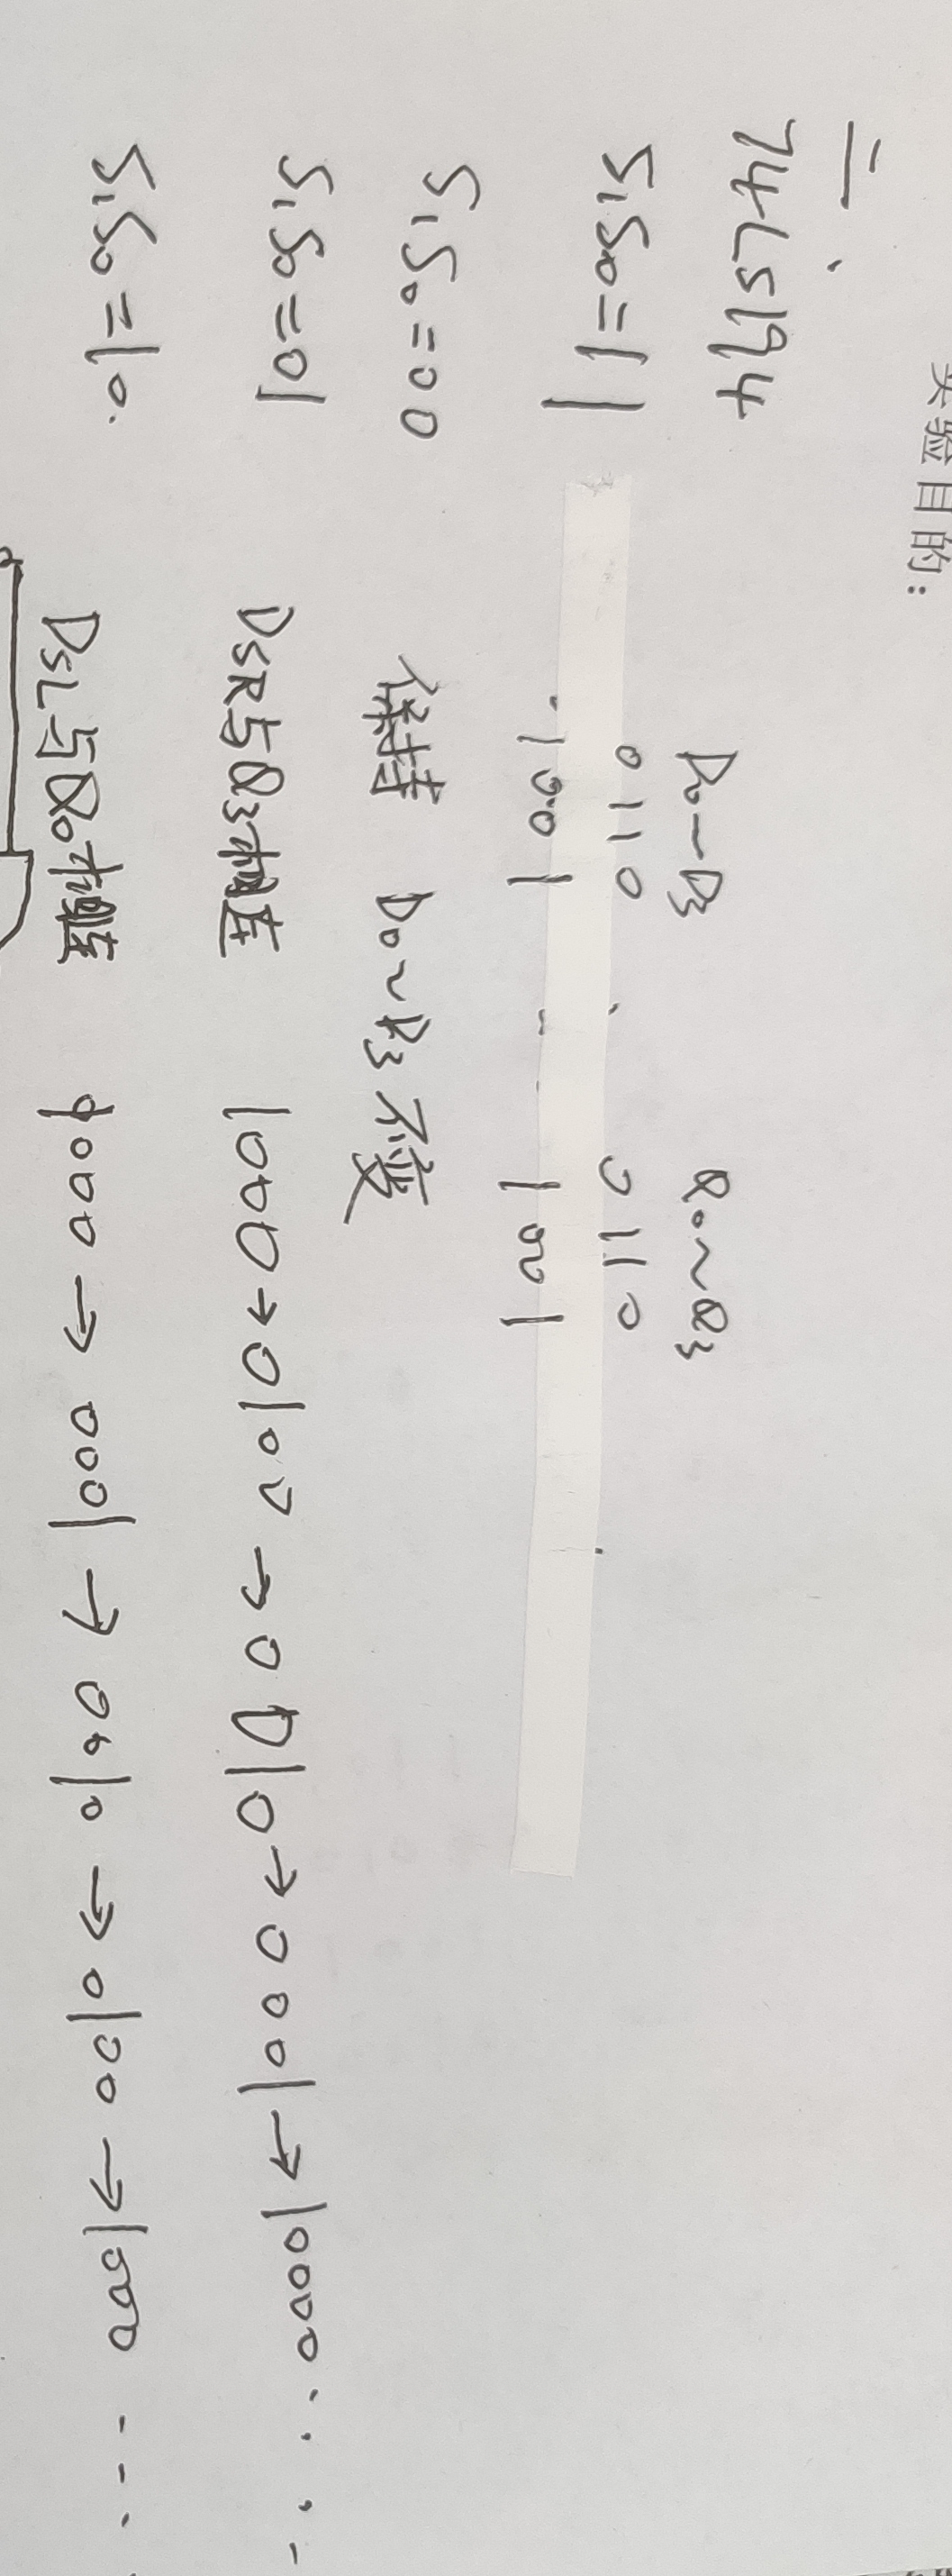 实验目的:
二、
74LS194
D0~D3 Q0~Q3
S1S0=11 0110 0110
1001 1001
S1S0=00 保持 D0~D3不变
S1S0=01 DSR与Q3相连 1000→0100→0010→0001→1000....
S1S0=10. DSL与Q0相连 1000→0001→0010→0100→1000...